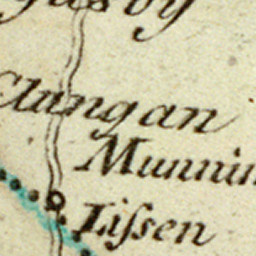 Clungan
Munnin
Liſsen